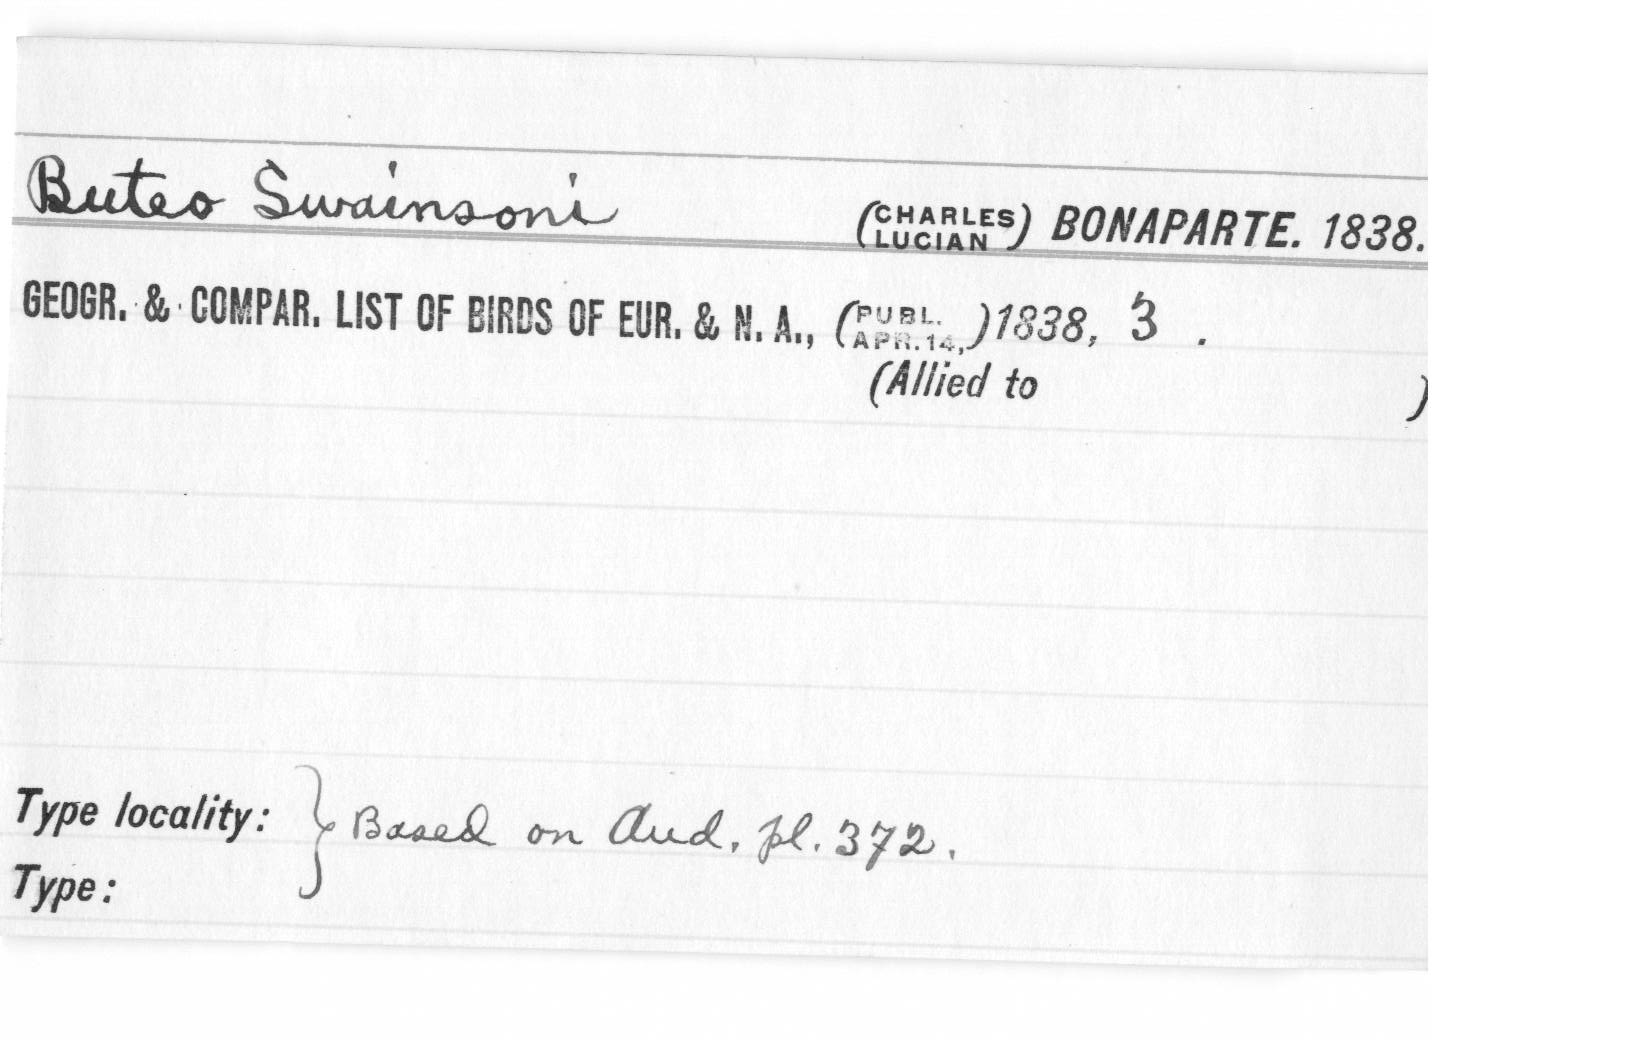 Buteo Swainsoni (CHARLES LUCIAN) BONAPARTE. 1838.
GEOGR. & COMPAR. LIST OF BIRDS OF EUR. & N. A., (PUBL. APR. 14,) 1838, 3 .
(Allied to )
Type locality: } Based on Aud. pl. 372.
Type: